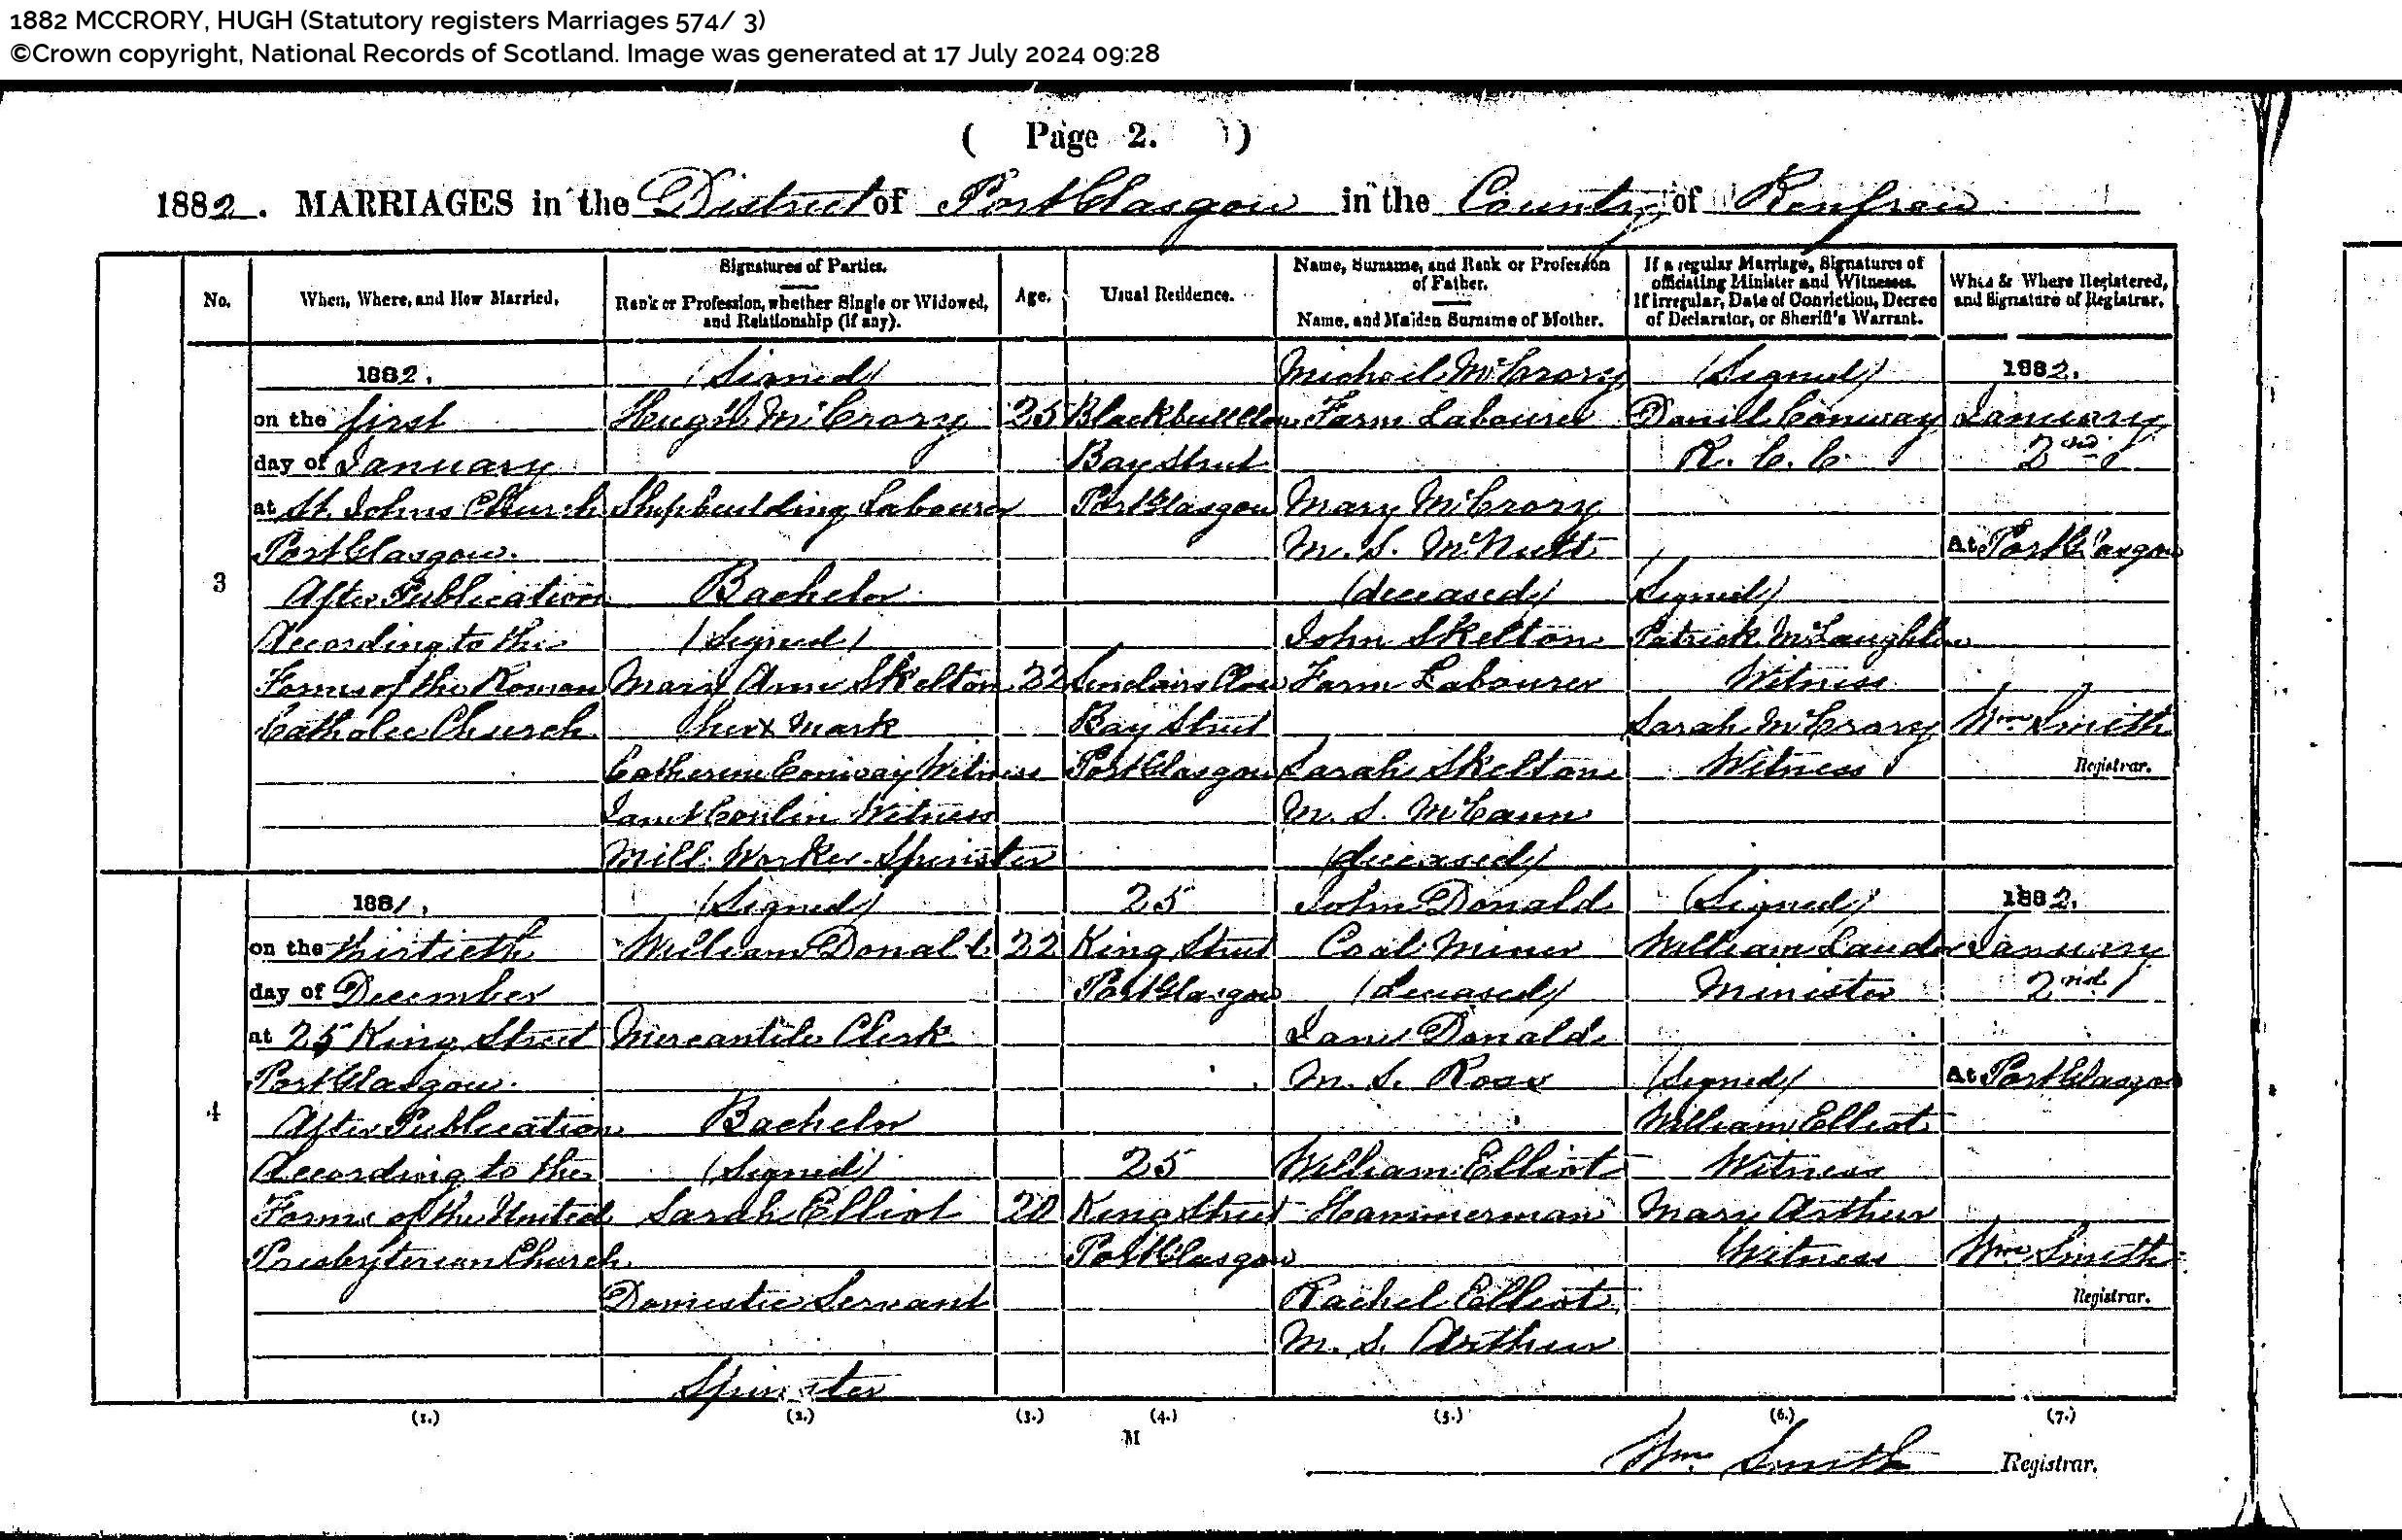 1882 MCCRORY, HUGH (Statutory registers Marriages 574/ 3)
©Crown copyright, National Records of Scotland. Image was generated at 17 July 2024 09:28
( Page 2. )
1882. MARRIAGES in the District of Port Glasgow in the County of Renfrew
No.
When, Where, and How Married.
Signatures of Parties.
Rank or Profession, whether Single or Widowed,
and Relationship (if any).
Age.
Usual Residence.
Name, Surname, and Rank or Profession
of Father.
Name, and Maiden Surname of Mother.
If a regular Marriage, Signatures of
officiating Minister and Witnesses.
If irregular, Date of Conviction, Decree
of Declarator, or Sheriff's Warrant.
When & Where Registered,
and Signature of Registrar.
3
1882,
on the first
day of January
at St. Johns Church
Port Glasgow.
After Publication
According to the
Forms of the Roman
Catholic Church
(Signed)
Hugh McCrory
Shipbuilding Labourer
Bachelor
(Signed)
Mary Ann Skelton
her x mark
Catherine Conway Witness
Janet Conlin Witness
Mill Worker Spinster
25
22
Blackbull Close
Bay Street
Port Glasgow
Sinclairs Close
Bay Street
Port Glasgow
Michael McCrory
Farm Labourer
Mary McCrory
M. S. McNutt
(deceased)
John Skelton
Farm Labourer
Sarah Skelton
M. S. McCann
(deceased)
(Signed)
Daniel Conway
R. C. C.
(Signed)
Patrick McLaughlin
Witness
Sarah McCrory
Witness
1882.
January
2nd
At Port Glasgow
Wm Smith
Registrar.
4
1881,
on the thirtieth
day of December
at 25 King Street
Port Glasgow.
After Publication
According to the
Forms of the United
Presbyterian Church
(Signed)
William Donald
Mercantile Clerk
Bachelor
(Signed)
Sarah Elliot
Domestic Servant
Spinster
22
20
25
King Street
Port Glasgow
25
King Street
Port Glasgow
John Donald
Coal Miner
(deceased)
Jane Donald
M. S.
William Elliot
Hammerman
Rachel Elliot
M. S. Arthur
(Signed)
William
Minister
(Signed)
William Elliot
Witness
Mary Arthur
Witness
1882.
January
2nd
At Port Glasgow
Wm Smith
Registrar.
(1.) (2.) (3.) (4.) (5.) (6.) (7.)
M
Wm. Smith Registrar.